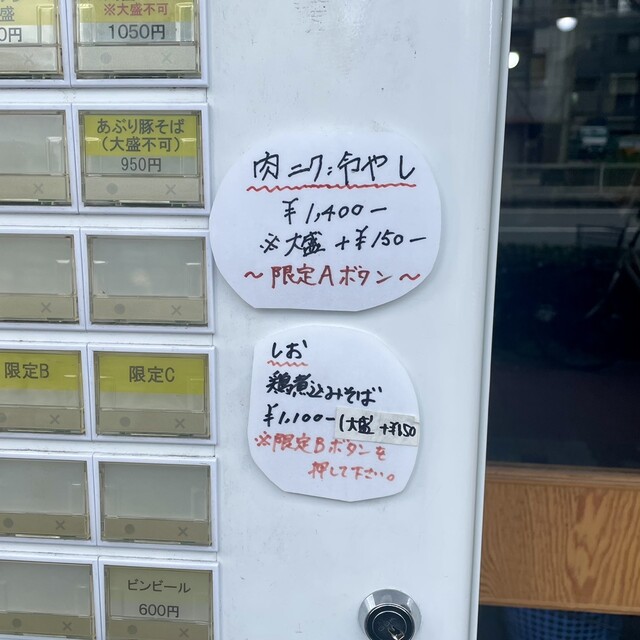 盛
0円
※大盛不可
1050円
あぶり豚そば
(大盛不可)
950円
限定B
限定C
ビンビール
600円
肉ニク:冷やし
¥1,400-
※大盛 +¥150-
~限定Aボタン~
しお
鶏煮込みそば
¥1,100-
(大盛 +¥150
※限定Bボタンを
押して下さい。